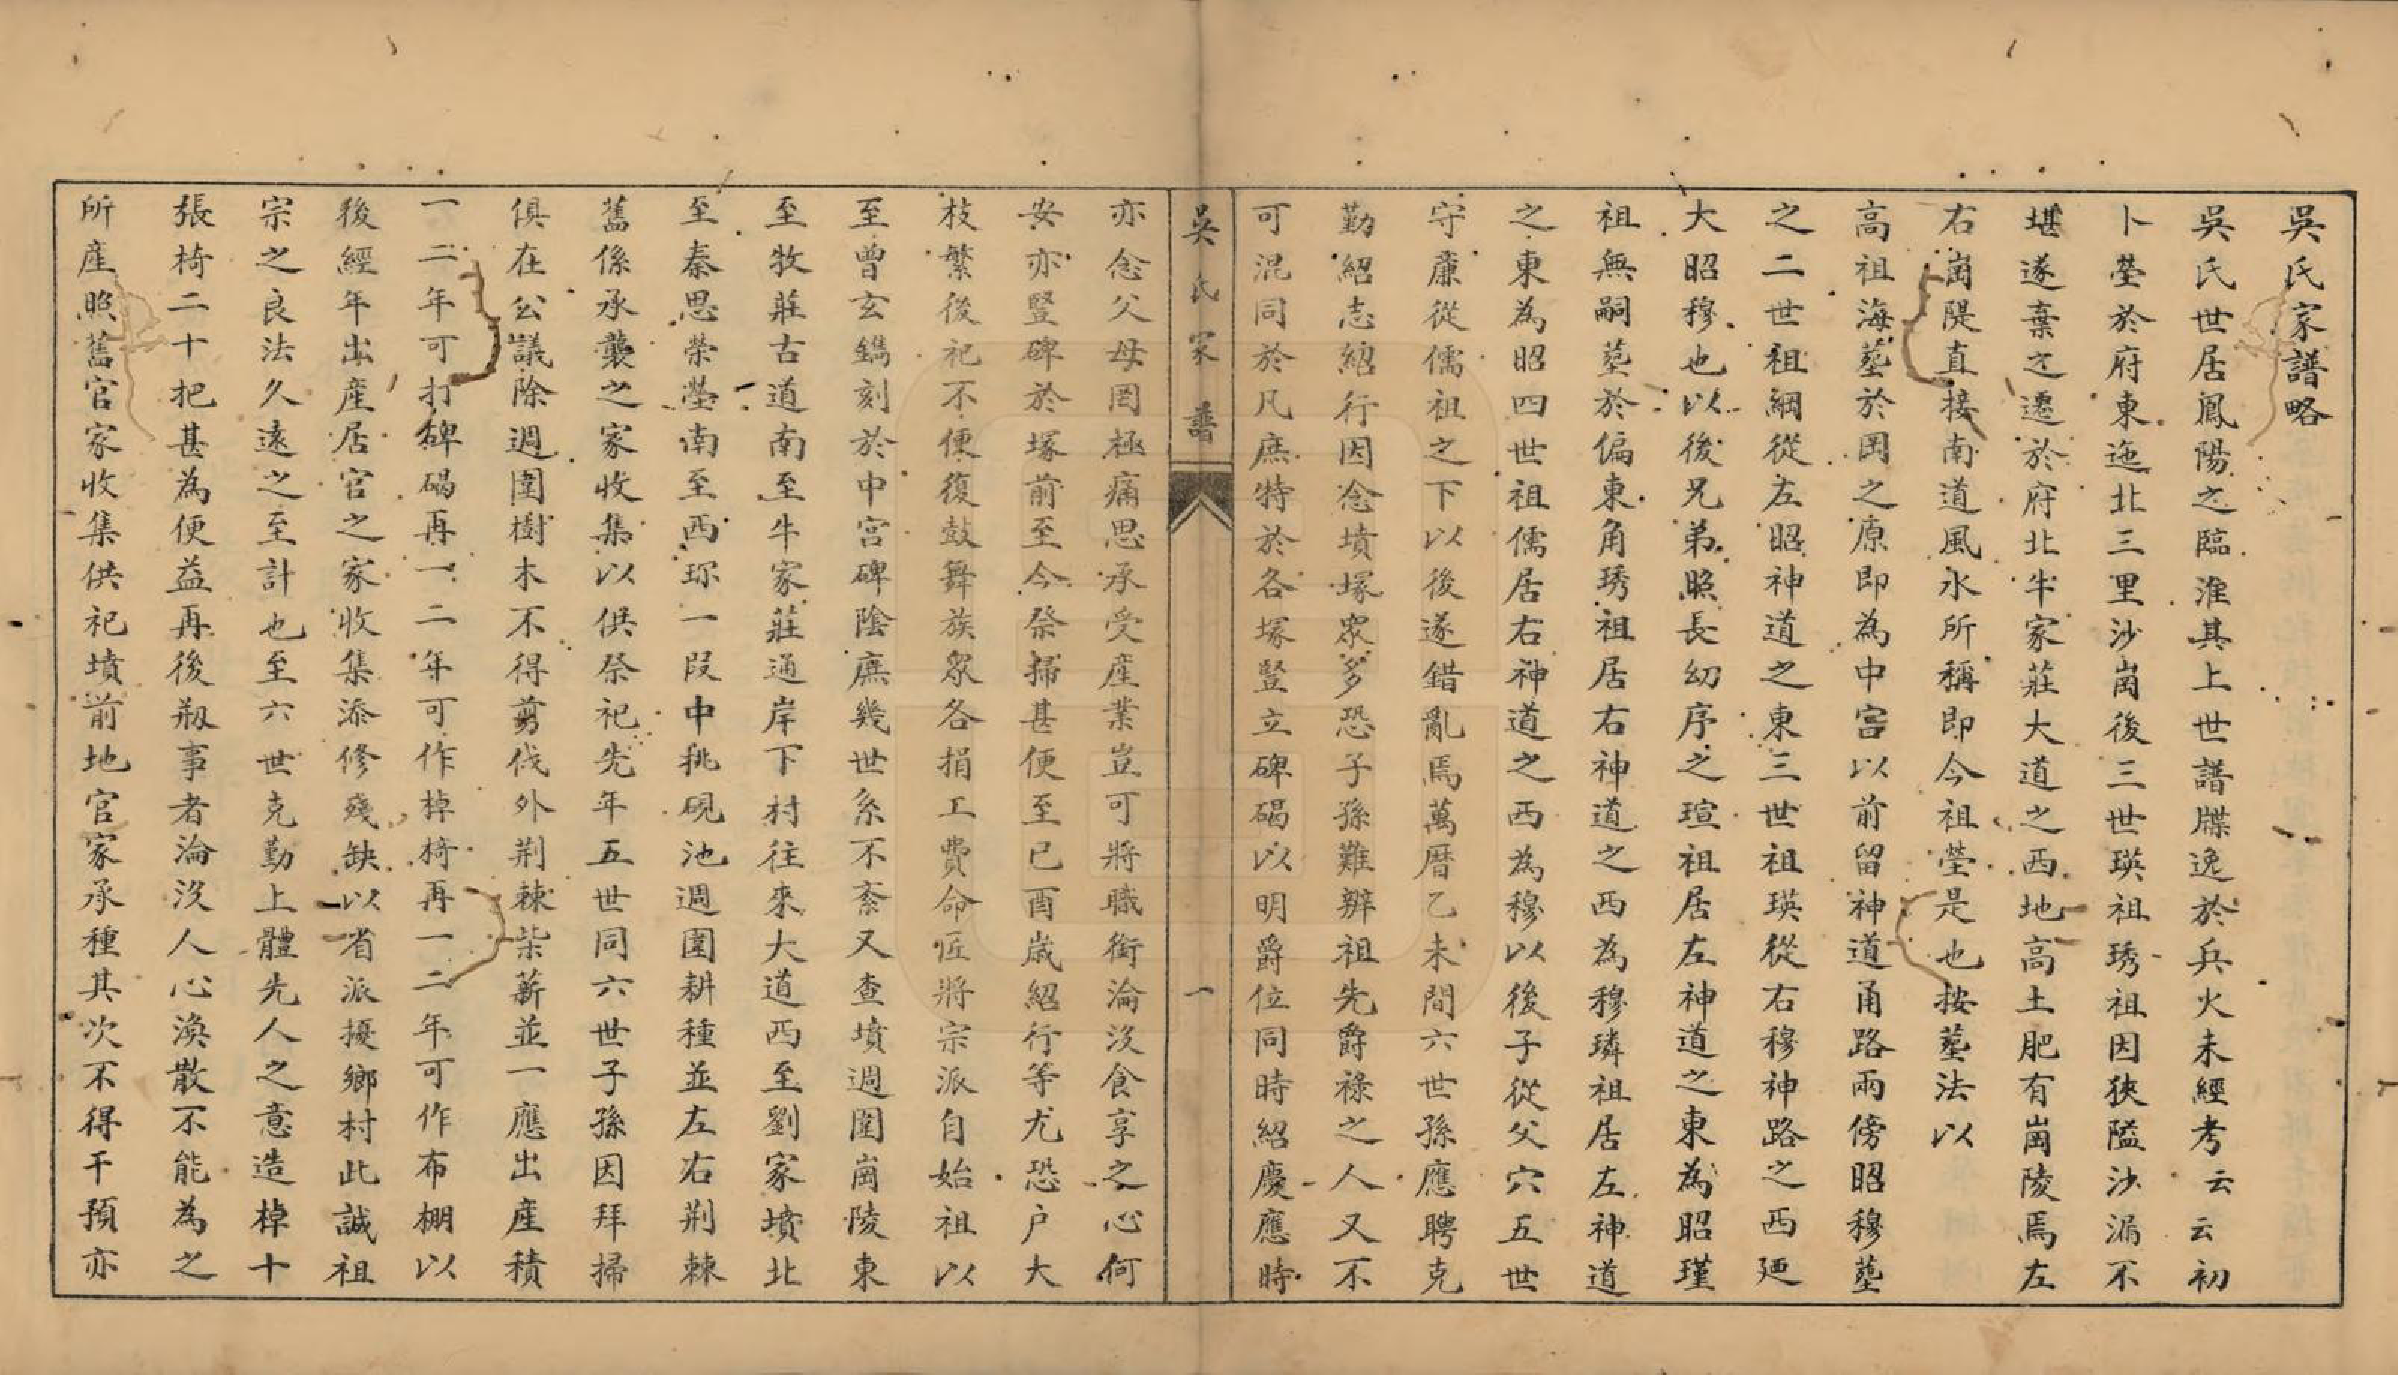 吳氏家譜略
吳氏世居鳳陽之臨淮其上世譜牒逸於兵火未經考云云初
卜塋於府東迤北三里沙崗後三世瑛祖琇祖因狹隘沙漏不
堪遂棄之遷於府北牛家莊大道之西地高土肥有崗陵焉左
右崗隄直接南道風水所稱即今祖塋是也按墓法以
高祖海墓於岡之原即為中宮以前留神道甬路兩傍昭穆墓
之二世祖綱從左昭神道之東三世祖瑛從右穆神路之西廼
大昭穆也以後兄弟照長幼序之瑄祖居左神道之東為昭瑾
祖無嗣墓於偏東角琇祖居右神道之西為穆璘祖居左神道
之東為昭四世祖儒居右神道之西為穆以後子從父穴五世
守廉從儒祖之下以後遂錯亂焉萬曆乙未間六世孫應聘克
勤紹志紹行因念墳塚眾多恐子孫難辦祖先爵祿之人又不
可混同於凡庶特於各塚豎立碑碣以明爵位同時紹慶應時
吳氏家譜 一
亦念父母罔極痛思承受產業豈可將職銜淪沒食享之心何
安亦豎碑於塚前至今祭掃甚便至己酉歲紹行等尤恐户大
枝繁後祀不便復鼓舞族眾各捐工費命匠將宗派自始祖以
至曾玄鐫刻於中宮碑陰庶幾世系不紊又查墳週圍崗陵東
至牧莊古道南至牛家莊通岸下村往來大道西至劉家墳北
至秦思榮塋南至西珎一段中挑硯池週圍耕種並左右荆棘
舊係承襲之家收集以供祭祀先年五世同六世子孫因拜掃
俱在公議除週圍樹木不得剪伐外荆棘柴薪並一應出產積
一二年可打碑碣再一二年可作棹椅再一二年可作布棚以
後經年出產居官之家收集添修殘缺以省派擾鄉村此誠祖
宗之良法久遠之至計也至六世克勤上體先人之意造棹十
張椅二十把甚為便益再後刱事者淪沒人心渙散不能為之
所產照舊官家收集供祀墳前地官家承種其次不得干預亦